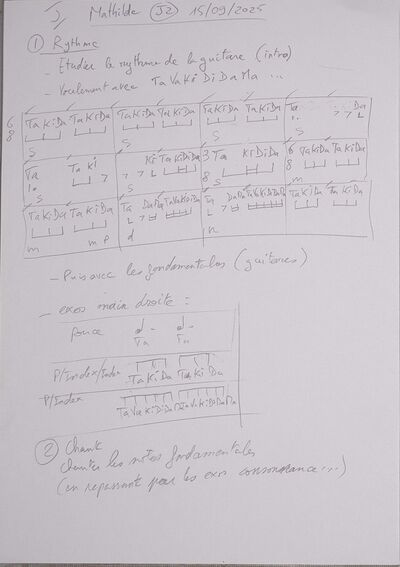 Mathilde (J2) 15/09/2025
① Rythme
- Etudier le rythme de la guitare (intro)
- Vocalement avec TaVaKiDiDaMa ...
6/8 TaKiDa TaKiDa | TaKiDa TaKiDa | TaKiDa TaKiDa | Ta Da
S S S
Ta Ta Ki | Ki TaKiDiDa | 3/8 Ta KiDiDa | 6/8 TaKiDa TaKiDa
S S S m
TaKiDa TaKiDa | Ta DaMa TaVaKiDiDa | Ta DaMa TaVaKiDiDaMa | TaKiDa TaKiDa
m m P d n
- Puis avec les fondamentales (guitares)
- exos main droite :
pouce
Ta Ta
P/Index/Index TaKiDa TaKiDa
P/Index TaVaKiDiDaMa TaVaKiDiDaMa
② Chant
Chanter les notes fondamentales
(en repassant par les exos consonance...)